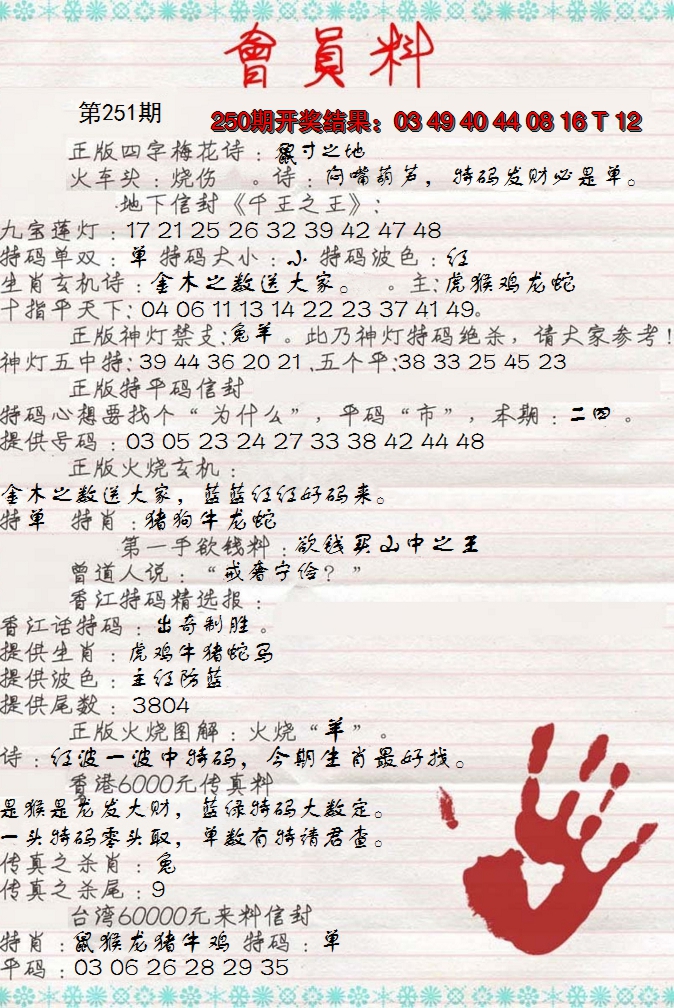 會員料
第251期
250期开奖结果：03 49 40 44 08 16 T 12
正版四字梅花诗：鼠寸之地
火车头：烧伤　。诗：向嘴葫芦，特码发财必是单。
地下信封《千王之王》：
九宝莲灯：17 21 25 26 32 39 42 47 48
特码单双：单 特码大小：小 特码波色：红
生肖玄机诗：金木之数送大家。　。主：虎猴鸡龙蛇
十指平天下：04 06 11 13 14 22 23 37 41 49。
正版神灯禁支：兔羊。此乃神灯特码绝杀，请大家参考！
神灯五中特：39 44 36 20 21 .五个平：38 33 25 45 23
正版特平码信封
特码心想要找个“为什么”，平码“市”，本期：二四。
提供号码：03 05 23 24 27 33 38 42 44 48
正版火烧玄机：
金木之数送大家，蓝蓝红红好码来。
特单 特肖：猪狗牛龙蛇
第一手欲钱料：欲钱买山中之王
曾道人说：“戒奢宁俭？”
香江特码精选报：
香江话特码：出奇制胜。
提供生肖：虎鸡牛猪蛇马
提供波色：主红防蓝
提供尾数：3804
正版火烧图解：火烧“羊”。
诗：红波一波中特码，今期生肖最好找。
香港6000元传真料
是猴是龙发大财，蓝绿特码大数定。
一头特码零头取，单数有特请君查。
传真之杀肖：兔
传真之杀尾：9
台湾60000元来料信封
特肖：鼠猴龙猪牛鸡 特码：单
平码：03 06 26 28 29 35